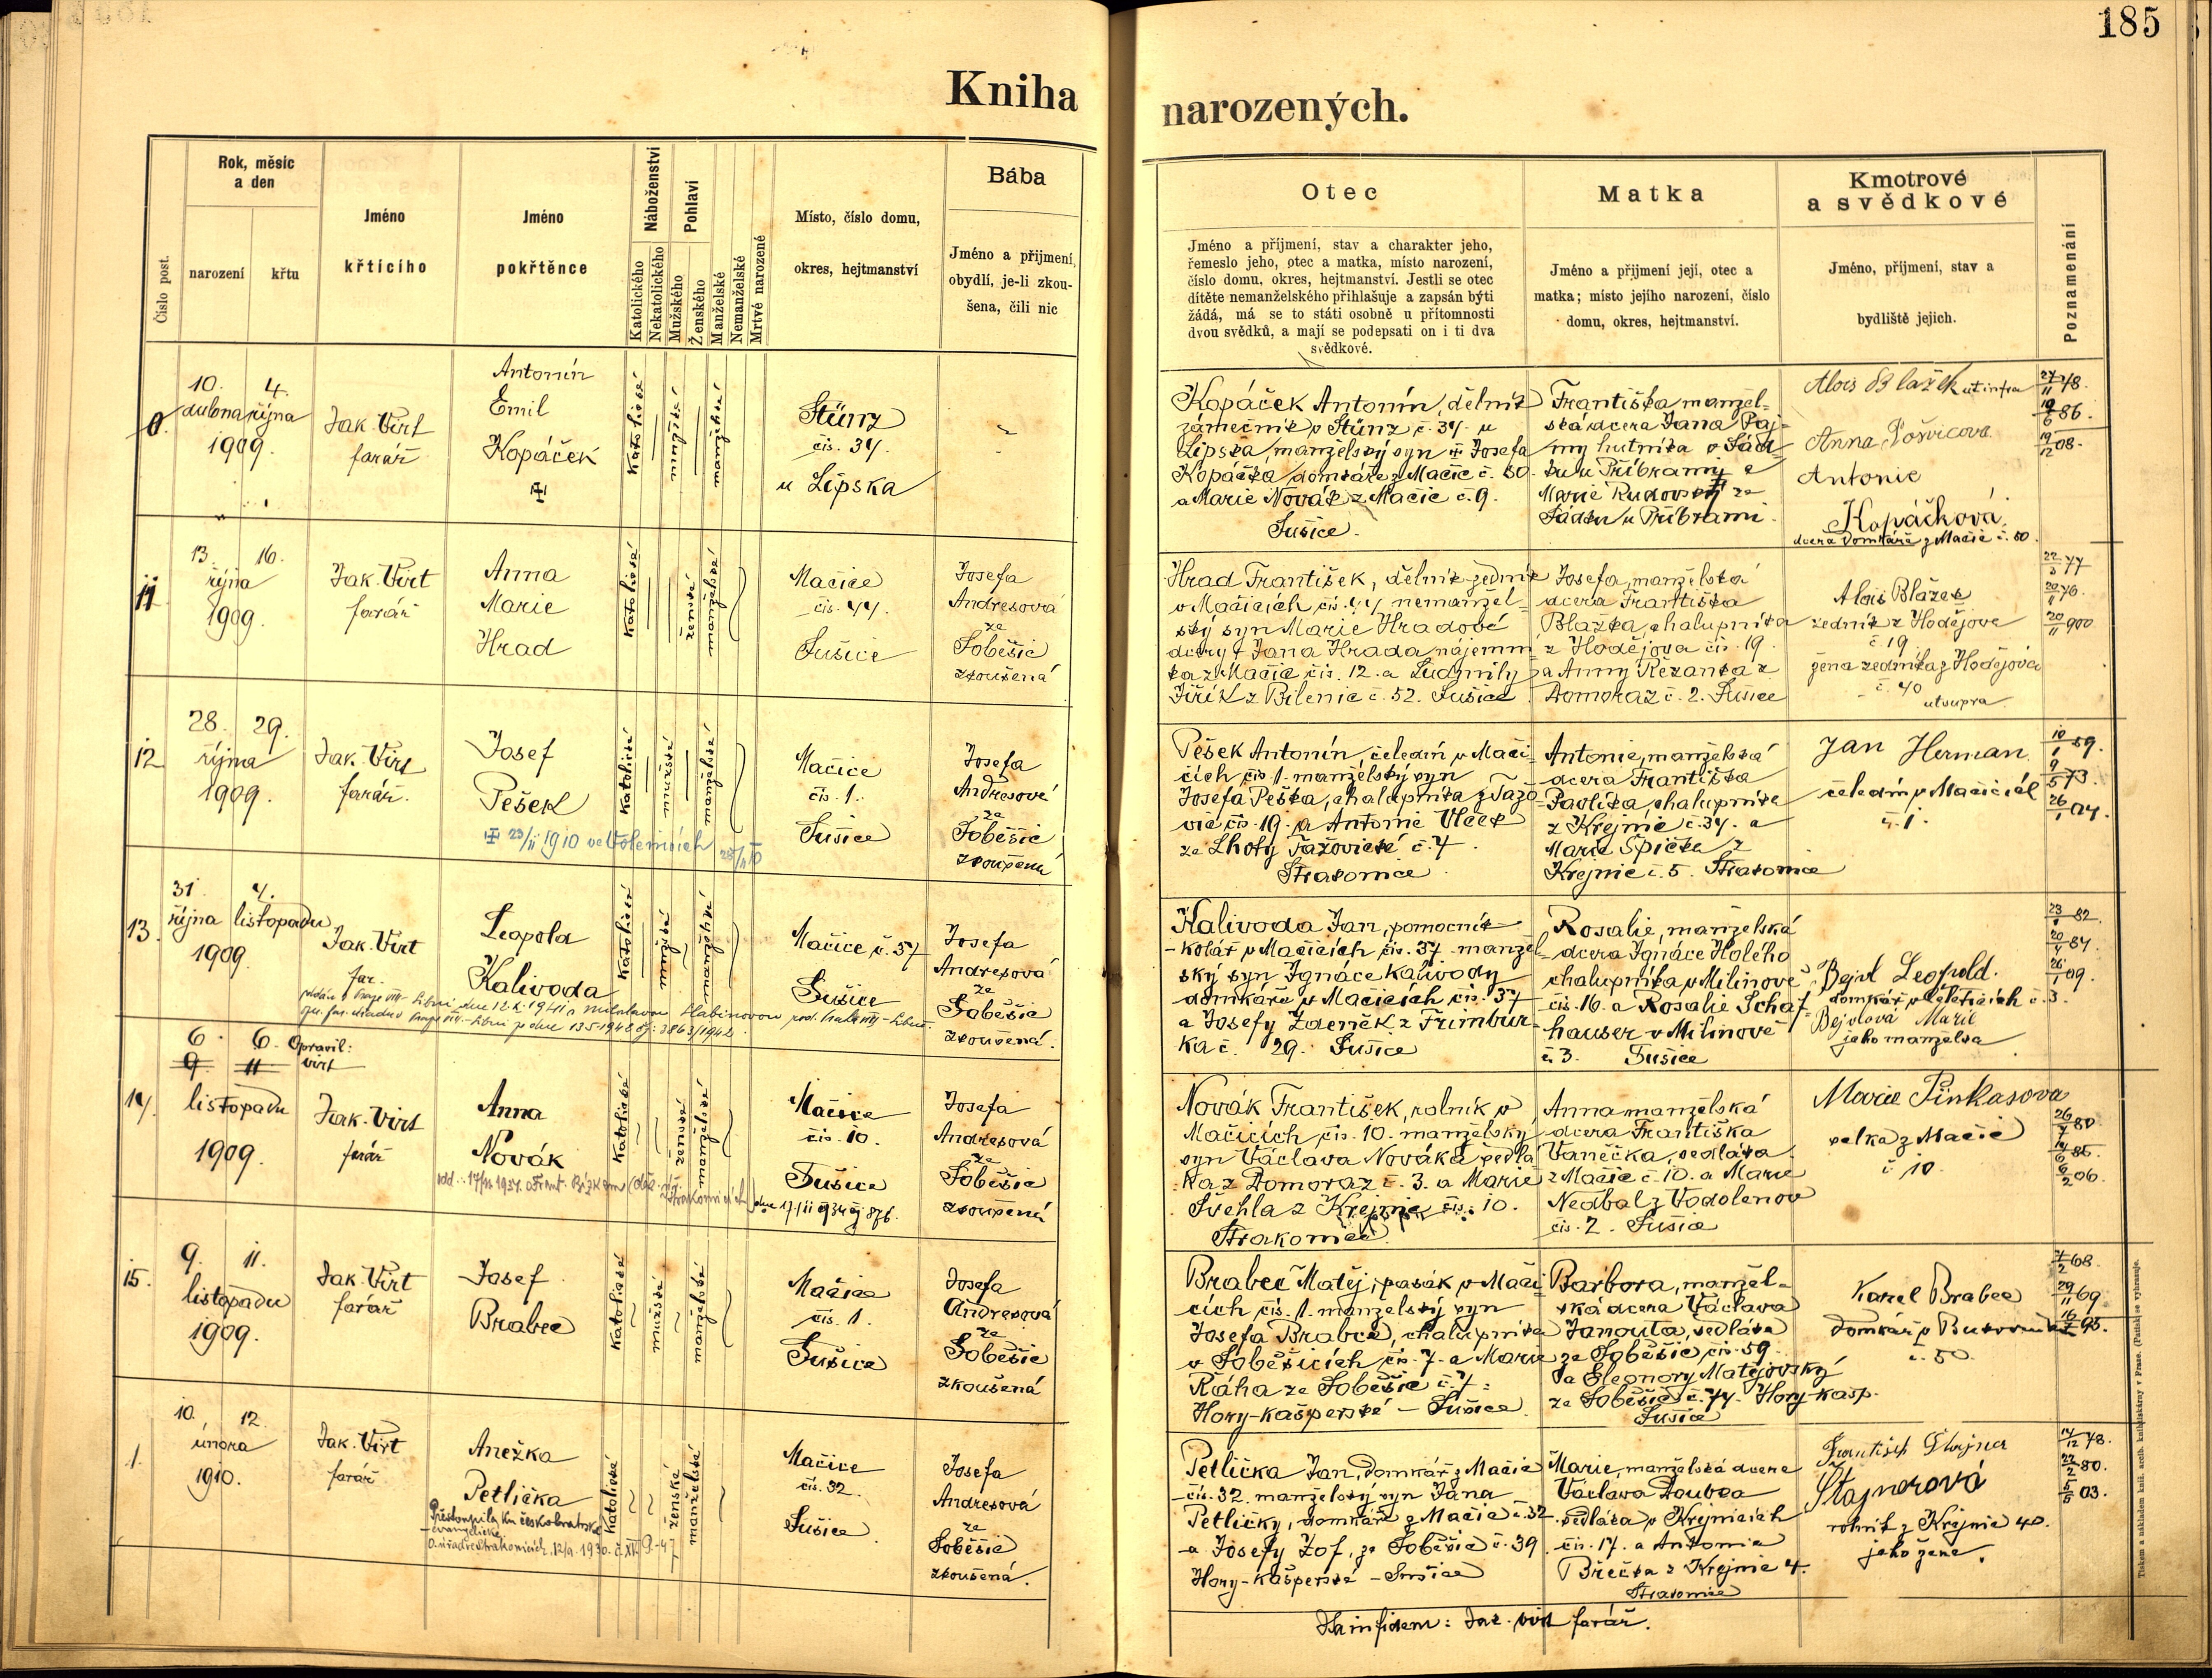 185
Kniha narozených.
Číslo post.
Rok, měsíc
a den
narození
křtu
Jméno
křtícího
Jméno
pokřtěnce
Náboženství
Katolického
Nekatolického
Pohlaví
Mužského
Ženského
Manželské
Nemanželské
Mrtvě narozené
Místo, číslo domu,
okres, hejtmanství
Bába
Jméno a přijmení,
obydlí, je-li zkou-
šena, čili nic
Otec
Jméno a příjmení, stav a charakter jeho,
řemeslo jeho, otec a matka, místo narození,
číslo domu, okres, hejtmanství. Jestli se otec
dítěte nemanželského přihlašuje a zapsán býti
žádá, má se to státi osobně u přítomnosti
dvou svědků, a mají se podepsati on i ti dva
svědkové.
Matka
Jméno a přijmení její, otec a
matka; místo jejího narození, číslo
domu, okres, hejtmanství.
Kmotrové
a svědkové
Jméno, příjmení, stav a
bydliště jejich.
Poznamenání
0.
10. 4.
dubna října
1909.
Jak. Virt
farář
Antonín
Emil
Kopáček
katolické
mužské
manželské
Stünz
čís. 34.
u Lipska
Kopáček Antonín, dělník
zámečník v Stünz č. 34. u
Lipska, manželský syn Josefa
Kopáčka domkáře z Mačic č. 80.
a Marie Novák z Mačic č. 9.
Sušice.
Františka manžel-
ská dcera Jana Paj-
my hutníka v Sád-
ku u Příbrami a
Marie Rudovský ze
Sádku u Příbrami.
Alois Blažek ut infra
Anna Pošvicova
Antonie
Kopáčková
dcera domkáře z Mačic č. 80.
27/11 48.
19/6 86.
19/12 08.
11
13. 16.
října
1909.
Jak. Virt
farář
Anna
Marie
Hrad
katolické
ženské
manželské
Mačice
čís. 44.
Sušice
Josefa
Andresová
ze
Soběšic
zkoušená
Hrad František, dělník zedník
v Mačicích čís. 44 nemanžel-
ský syn Marie Hradové
dcery Jana Hrada nájemní-
ka z Mačic čís. 12. a Ludmily
Jiřík z Bílenic č. 52. Sušice
Josefa, manželská
dcera Františka
Blažka, chalupníka
z Hodějova čís. 19.
a Anny Řezanka z
Domoraz č. 2. Sušice
Alois Blažek
zedník z Hodějova
č. 19
žena zedníka z Hodějova
č. 40
utsupra
22/3 77
20/1 76.
20/11 900
12
28. 29.
října
1909.
Jak. Virt
farář.
Josef
Pešek
23/11 1910 ve Volenicích
katolické
mužské
manželské
Mačice
čís. 1.
Sušice
Josefa
Andresová
ze
Soběšic
zkoušená
Pešek Antonín, čeledín v Mači-
cích čís. 1. manželský syn
Josefa Peška, chalupníka z Tažo-
vic čís. 19. a Antonie Vlček
ze Lhoty Tažovické č. 7.
Strakonice
Antonie, manželská
dcera Františka
Pavlíka, chalupníka
z Krejnic č. 34. a
Marie Špička z
Krejnic č. 5. Strakonice
Jan Herman
čeledín v Mačicích
č. 1.
10/1 59.
9/5 73.
26/1 04.
13.
31. 4.
října listopadu
1909.
Jak. Virt
far.
Leopold
Kalivoda
katolické
mužské
manželské
Mačice č. 37
Sušice
Josefa
Andresová
ze
Soběšic
zkoušená.
Kalivoda Jan, pomocník
kolář v Mačicích čís. 37. manžel-
ský syn Ignáce Kalivody
domkáře v Mačicích čís. 37
a Josefy Zdeněk z Frimbur-
ka č. 29. Sušice
Rosalie, manželská
dcera Ignáce Holého
chalupníka v Milínově
čís. 16. a Rosalie Schaf-
hauser v Milínově
č. 3. Sušice
Bejvl Leopold.
Bejvlová Marie
jako manželka
23/1 82.
20/4 84.
26/1 09.
14.
6. 6. Opravil:
9. 11 Virt
listopadu
1909.
Jak. Virt
farář
Anna
Novák
katolické
ženské
manželské
Mačice
čís. 10.
Sušice
Josefa
Andresová
ze
Soběšic
zkoušená
Novák František, rolník v
Mačicích čís. 10. manželský
syn Václava Nováka sedlá-
ka z Domoraz č. 3. a Marie
Švehla z Krejnic čís. 10.
Strakonice.
Anna manželská
dcera Františka
Vaněčka, sedláka
z Mačic č. 10. a Marie
Nedbal z Vodolenov
čís. 2. Sušice
Marie Pinkasova
z Mačic
č. 10.
26/7 80
14/6 85.
6/2 06.
15.
9. 11.
listopadu
1909.
Jak. Virt
farář
Josef
Brabec
katolické
mužské
manželské
Mačice
čís. 1.
Sušice
Josefa
Andresová
ze
Soběšic
zkoušená
Brabec Matěj, pasák v Mači-
cích čís. 1. manželský syn
Josefa Brabce, chalupníka
v Soběšicích čís. 7. a Marie
Ráha ze Soběšic č. 7.
Hory-kašperské - Sušice
Barbora, manžel-
ská dcera Václava
Janouta, sedláka
ze Soběšic čís. 59.
a Eleonory Matějovský
ze Soběšic č. 74. Hory-kašp.
Sušice
Karel Brabec
domkář v
č. 50.
29/11 69
1.
10. 12.
února
1910.
Jak. Virt
farář
Anežka
Petlička
Přestoupila ku českobratrské
evangelické.
katolické
ženské
manželské
Mačice
čís. 32.
Sušice
Josefa
Andresová
ze
Soběšic
zkoušená.
Petlička Jan, domkář z Mačic
čís. 32. manželský syn Jana
Petličky, domkáře z Mačic č. 32
a Josefy Zof, ze Soběšic č. 39
Hory-kašperské - Sušice
Marie, manželská dcera
Václava Doubka
sedláka v Krejnicích
čís. 17. a Antonie
Břečka z Krejnic 4.
Strakonice
Štajnerová
rolník z Krejnic 40.
jeho žena.
14/12 78.
22/2 80.
5/5 03.
In fidem: Jak. Virt farář.